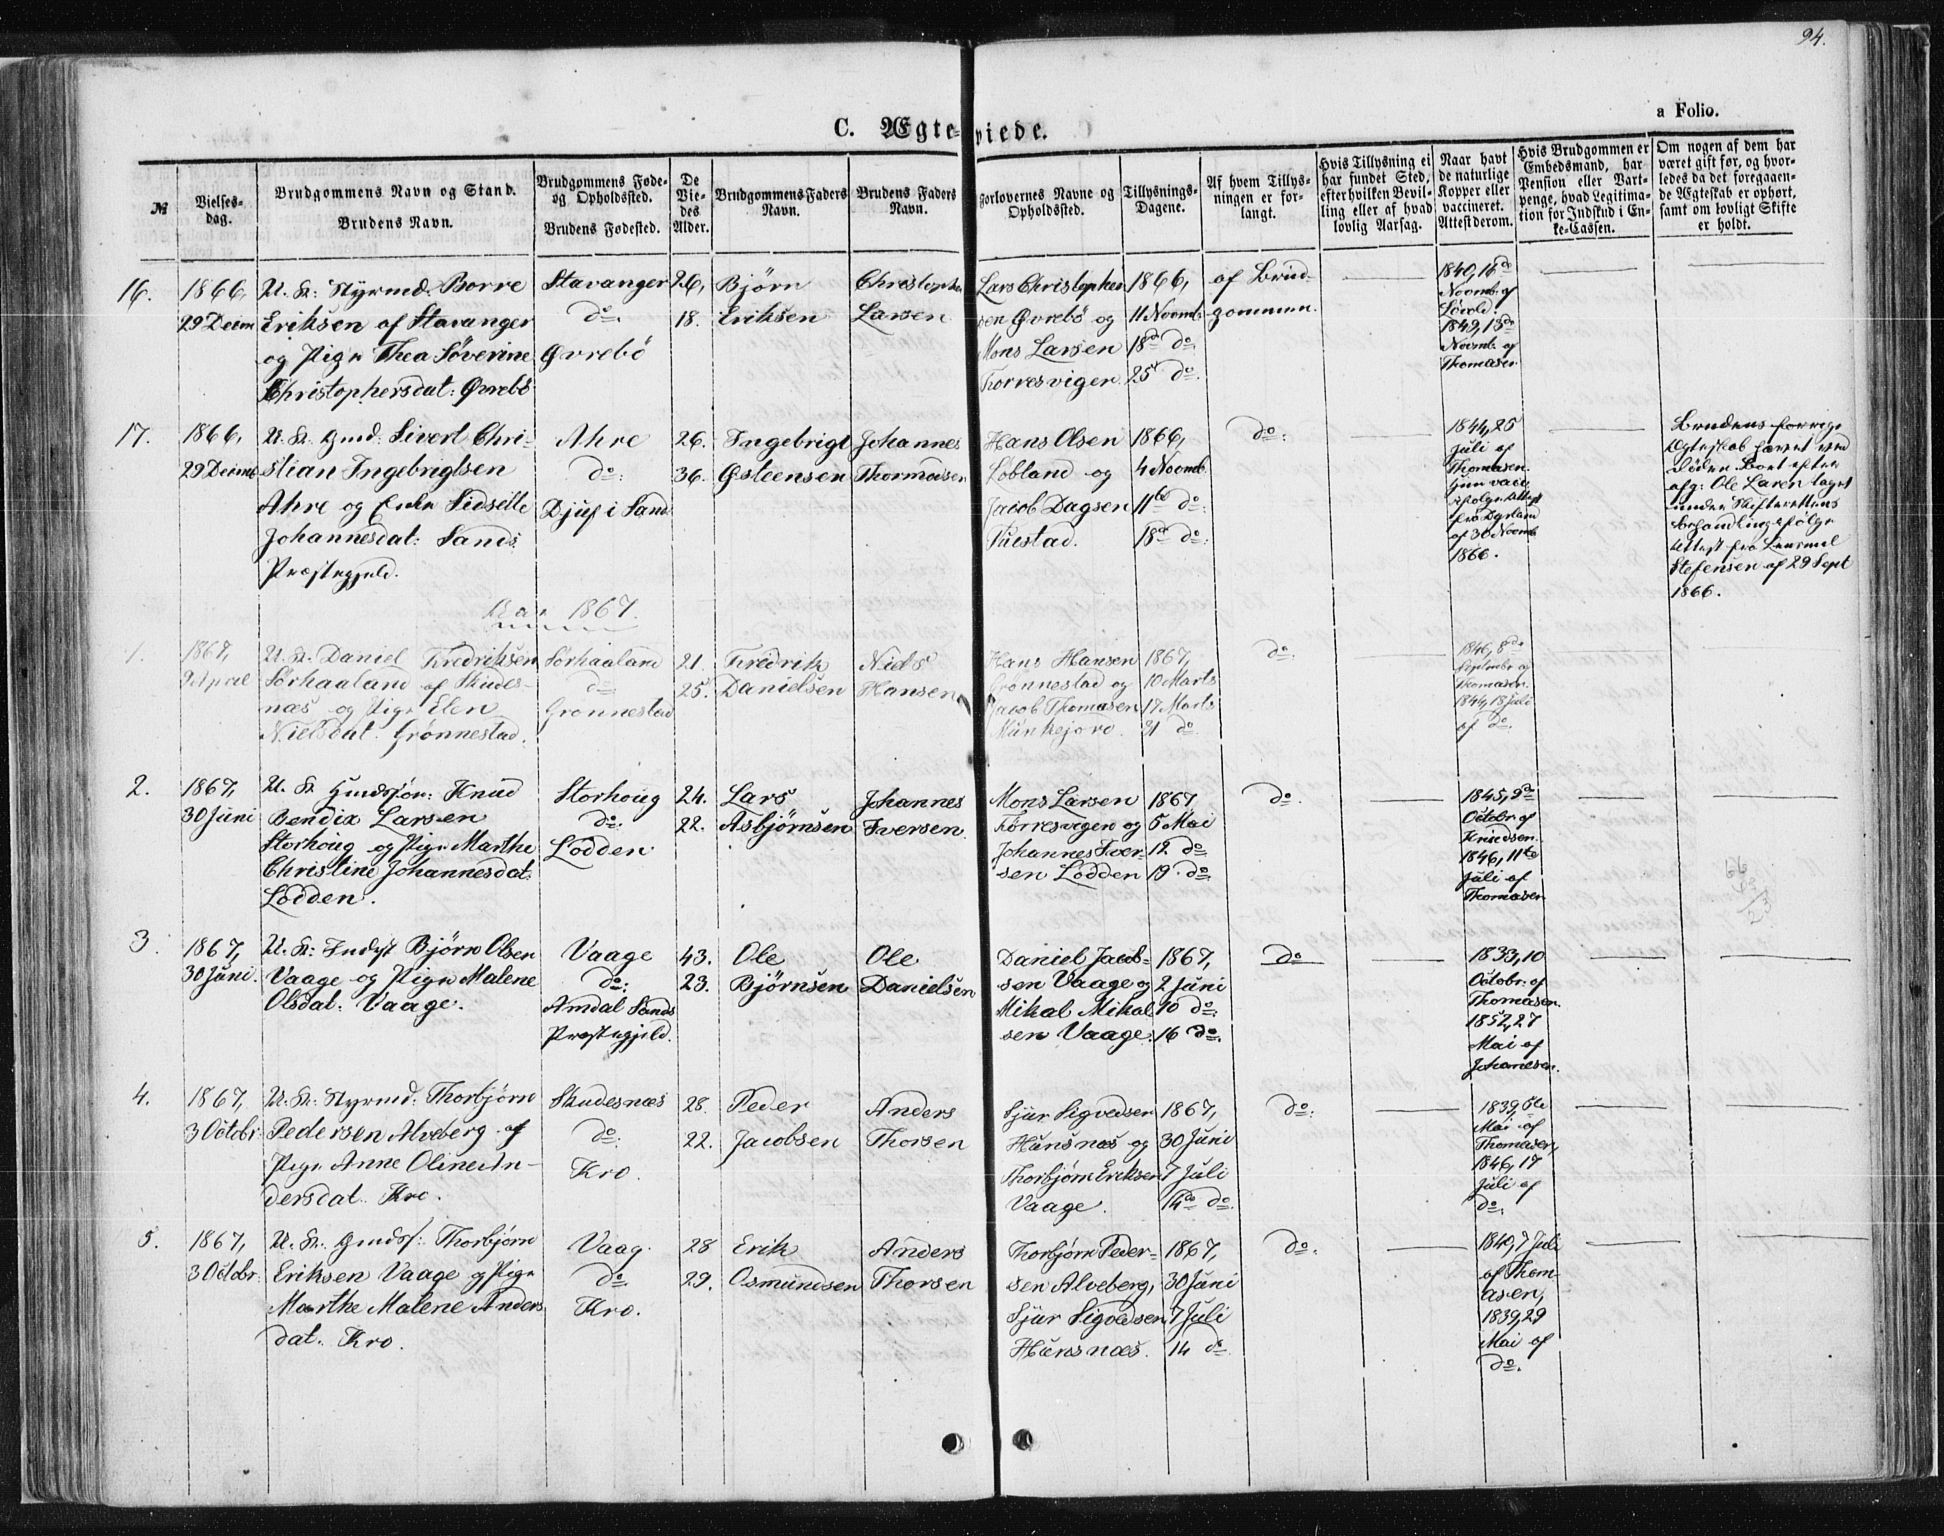 94.
a Folio.
C. Ægteviede.
№
Vielses-
dag.
Brudgommens Navn og Stand.
Brudens Navn.
Brudgommens Føde-
og Opholdssted.
Brudens Fødested.
De
Vie-
des
Alder.
Brudgommens Faders
Navn.
Brudens Faders
Navn.
Forlovernes Navne og
Opholdssted.
Tillysnings-
Dagene.
Af hvem Tillys-
ningen er for-
langt.
Hvis Tillysning ei
har fundet Sted,
efter hvilken Bevil-
ling eller af hvad
lovlig Aarsag.
Naar havt
de naturlige
Kopper eller
vaccineret.
Attest derom.
Hvis Brudgommen er
Embedsmand, har
Pension eller Vart-
penge, hvad Legitima-
tion for Indskud i En-
ke-Cassen.
Om nogen af dem har
været gift før, og hvor-
ledes da det foregaaen-
de Ægteskab er ophørt,
samt om lovligt Skifte
er holdt.
16.
1866,
29 Decmb
U. K: Styrmd: Borre
Eriksen af Stavanger
og Pige Thea Söverine
Christophersdat: Øvrebö
Stavanger
do:
Øvrebö
26,
18.
Bjørn
Eriksen
Christopher
Larsen
Lars Christopher
sen Øvrebö og
Mons Larsen
Thorresvigen
1866,
11 Novmb.
18de do:
25 do:
af Brud-
gommen.
1840, 16de
Novmb. af
Løvold.
1849, 13de
Novmb. af
Thomasen
17.
1866,
29 Decmb
U. K. Gmd: Sivert Chri-
stian Ingebrigtsen
Ahre og Enke Sidselle
Johannesdat: Sands
Præstegjeld.
Ahre
do:
Djup i Sand
26.
36.
Ingebrigt
Østeensen
Johannes
Thormodsen
Hans Olsen
Løbland og
Jacob Dagsen
Viestad.
1866,
4 Novmb.
11te do:
18de do:
do:
1844, 25
Juli af
Thomasen.
ifølge Attest
fra Dyrland
af 30 Novmb
1866.
Brudens forrige
Ægteskab hævet ved
Døden. Boet efter
afg: Ole Laren taget
under Skifterettens
Behandling ifølge
Attest fra Lensmd
Stefensen af 29 Sept
1866.
Aar 1867.
1.
1867,
9 April
U. K. Daniel Fredriksen
Sørhaaland af Skudes-
næs og Pige Elen
Nielsdat. Grønnestad.
Sørhaaland
do:
Grønnestad
21.
25.
Fredrik
Danielsen
Niels
Hansen
Hans Hansen
Grønnestad og
Jacob Thomasen
Munkejord.
1867,
10 Marts
17 Marts
31 do:
do:
1846, 8de
Septmbr. af
Thomasen.
1844, 18 Juli
af do:
2.
1867,
30 Juni
U. K Gmdssøn: Knud
Bendix Larsen
Storhoug og Pige Marthe
Christine Johannesdat:
Lodden.
Storhoug
do:
Lodden
24.
22.
Lars
Asbjørnsen
Johannes
Iversen
Mons Larsen
Torresvigen og
Johannes Iver-
sen Lodden
1867
5 Mai
12 do:
19. do:
do:
1845, 9de
Octobr af
Knudsen.
1846, 11te
Juli af
Thomasen
66
43
23
3.
1867,
30 Juni.
U. K: Indst Bjørn Olsen
Vaage og Pige Malene
Olsdat: Vaage.
Vaage
do:
Amdal Sands
Præstegjeld.
43.
23.
Ole
Bjørnsen
Ole
Danielsen
Daniel Jacob-
sen Vaage og
Mikal Mikal
sen Vaage.
1867,
2 Juni
10 do:
16 do:
do
1833, 10
Octobr: af
Thomasen.
1852, 27
Mai af
Johanesen.
4.
1867,
3 Octobr
U. K: Styrmd: Thorbjørn
Pedersen Alveberg af
Pige Anne Oline An-
dersdat. Kro.
Skudesnæs
do:
Kro.
28.
22.
Peder
Jacobsen
Anders
Thorsen
Sjur Sigvedsen
Hunsnæs og
Thorbjørn Eriksen
Vaage.
1867,
30 Juni
7 Juli
14de do.
do:
1839, 6te
Mai af
Thomasen,
1846, 17
Juli af
do:
5.
1867,
3 Octobr:
U. K. Gmdsf: Thorbjørn
Eriksen Vaage og Pige
Marthe Malene Anders
dat. Kro.
Vaag.
do:
Kro.
28
29.
Erik
Osmundsen
Anders
Thorsen
Thorbjørn Peder-
sen Alveberg,
Sjur Sigvldsen
Hunsnæs.
1867,
30 Juni
7 Juli
14 do
do:
1840, 7 Juli
af Thom-
asen,
1839, 29
Mai af
do.